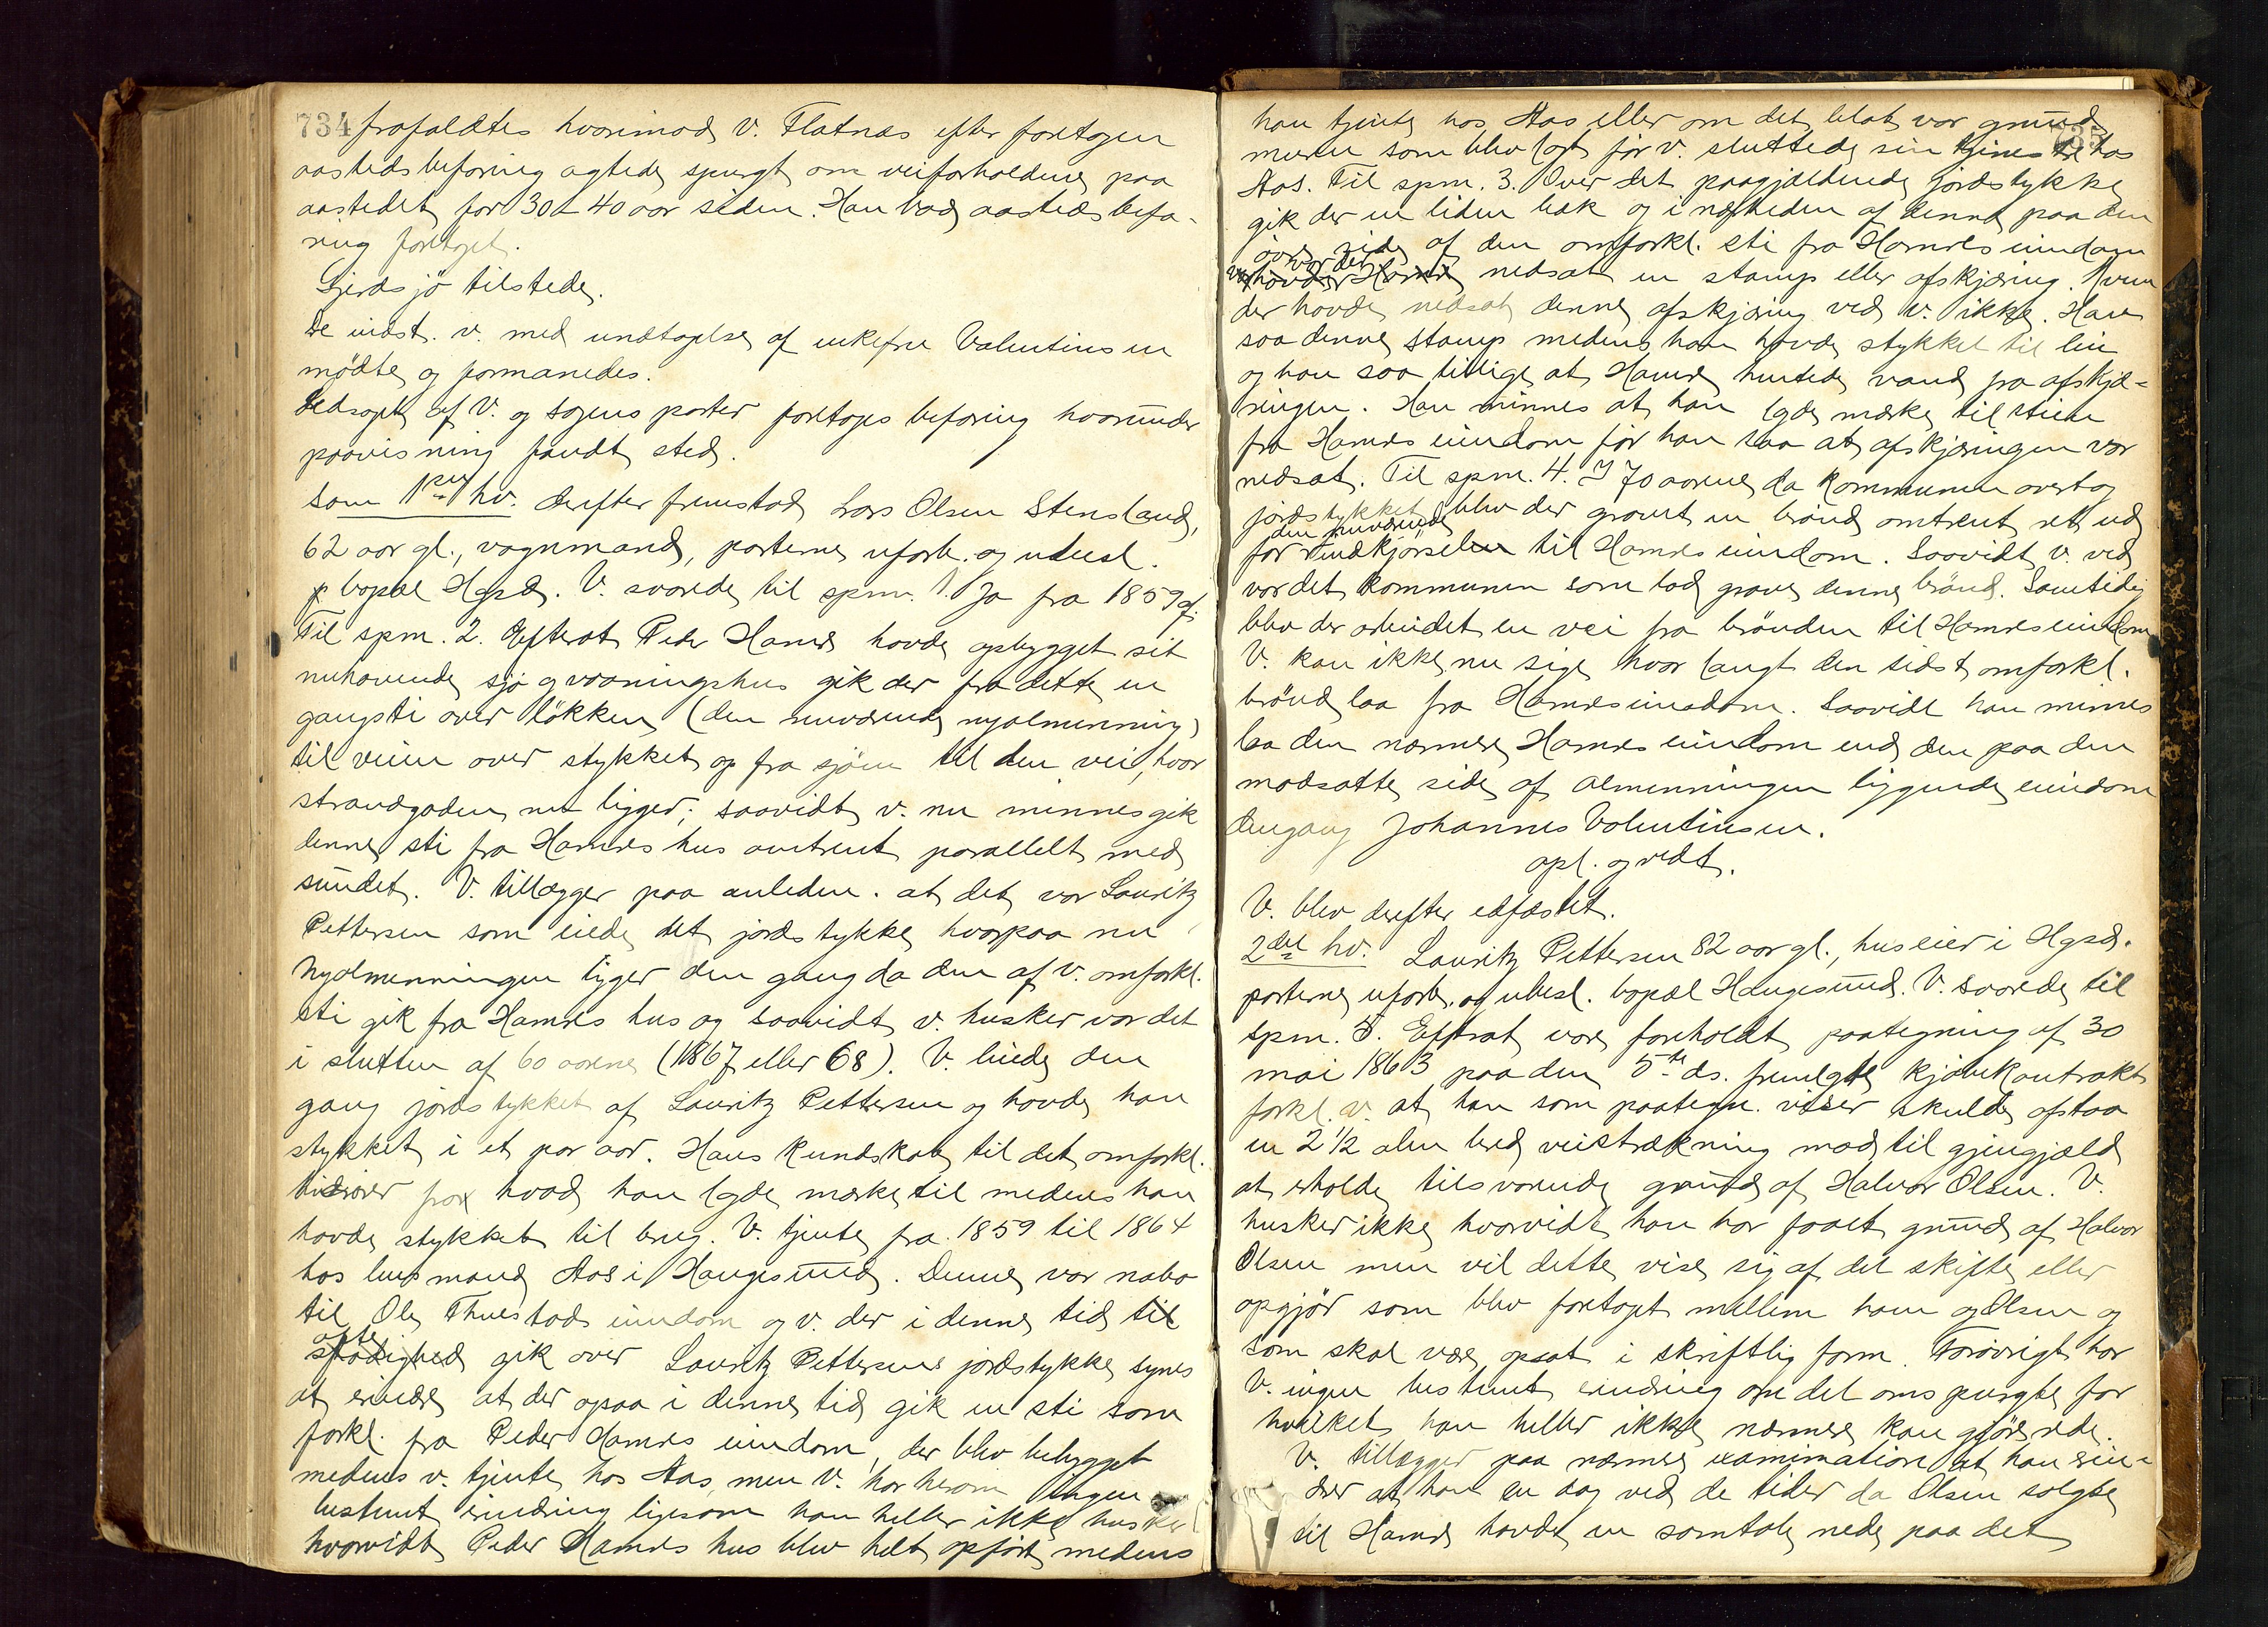 734 frafaldtes hvorimod V. Flatnæs efter foretagen
aastedsbefaring agtede spurgt om veiforholdene paa
aastedet for 30 a 40 aar siden. Han bad aastedsbefa-
ring foretaget.
Gjerdsjö tilstede.
De indst. v. med undtagelse af enkefru Valentinsen
mödte og formanedes.
Ledsaget af V. og sagens parter foretages befaring hvorunder
paavisning fandt sted.
Som 1ste hv. derefter fremstod Lars Olsen Stensland,
62 aar gl., vognmand, parterne uforb. og ubesl.
bopæl Hgsd. V. svarede til spm. 1. Ja fra 1859 af.
Til spm. 2. Efterat Peder Hamre havde opbygget sit
nuhavende sjö og vaaningshus gik der fra dette en
gangsti over lökken (den nuværende nyalmenning)
til veien over stykket op fra sjöen til den vei, hvor
strandgaden nu ligger; saavidt v. nu minnes gik
denne sti fra Hamres hus omtrent parallelt med
sundet. V. tillægger paa anledn. at det var Lauritz
Pettersen som eiede det jordstykke hvorpaa nu
Nyalmenningen ligger den gang da den af v. omforkl.
sti gik fra Hamres hus og saavidt v. husker var det
i slutten af 60 aarene (1867 eller 68). V. leiede den
gang jordstykket af Lauritz Pettersen og havde han
stykket i et par aar. Hans kundskab til det omforkl.
hidrører fra hvad han lagde mærke til medens han
havde stykket til brug. V. tjente fra 1859 til 1864
hos lensmand Aas i Haugesund. Denne var nabo
til Ole Thuestads eiendom og v. der i denne tid til
ofte
stadighed gik over Lauritz Pettersens jordstykke synes
at erindre at der ogsaa i denne tid gik en sti som
forkl. fra Peder Hamres eiendom, der blev bebygget
medens v. tjente hos Aas, men V. har herom ingen
bestemt erindring ligesom han heller ikke husker
hvorvidt Peder Hamres hus blev helt opfört medens
735
han tjente hos Aas eller om det blot var grund
muren som blev lagt för v. sluttede sin tjeneste hos
Aas. Til spm. 3. Over det paagjældende jordstykke
gik der en liden bæk og i nærheden af denne paa den
övre side af den omforkl. sti fra Hamres eiendom
var der
havde Hamre nedsat en stamp eller afskjæring. Hvem
der havde nedsat denne afskjæring ved v. ikke. Han
saa denne stamp medens han havde stykket til leie
og han saa tillige at Hamre hentede vand fra afskjæ-
ringen. Han minnes at han lagde mærke til stien
fra Hamres eiendom för han saa at afskjæringen var
nedsat. Til spm. 4. I 70 aarene da kommunen overtog
jordstykket blev der gravet en brönd omtrent ret ud
den nuværende
for indkjörselen til Hamres eiendom. Saavidt v. ved
var det kommunen som lod grave denne brönd. Samtidig
blev der arbeidet en vei fra brönden til Hamres eiendom
V. kan ikke nu sige hvor langt den sidst omforkl.
brönd laa fra Hamres eiendom. Saavidt han minnes
laa den nærmere Hamres eiendom end den paa den
modsatte side af almenningen liggende eiendom
dengang Johannes Valentinsen.
opl. og vedt.
V. blev derefter edfæstet.
2det hv. Lauritz Pettersen 82 aar gl., huseier i Hgsd.
parterne uforb. og ubesl. bopæl Haugesund. V. svarede til
spm. 5. Efterat være foreholdt paategning af 30
mai 1863 paa den 5te ds. fremlagte kjöbekontrakt
forkl. v. at han som paategn. viser skulde afstaa
en 2 1/2 alen bred veistrækning mod til gjengjæld
at erholde tilsvarende grund af Halvor Olsen. V.
husker ikke hvorvidt han har faaet grund af Halvor
Olsen men vil dette vise sig af det skifte eller
opgjör som blev foretaget mellem ham og Olsen og
som skal være opsat i skriftlig form. Forövrigt har
V. ingen bestemt erindring om det omspurgte for
hvilket han heller ikke nærmere kan gjöre rede.
V. tillægger paa nærmere examination at han erin-
drer at han en dag ved de tider da Olsen solgte
til Hamre havde en samtale nede paa det